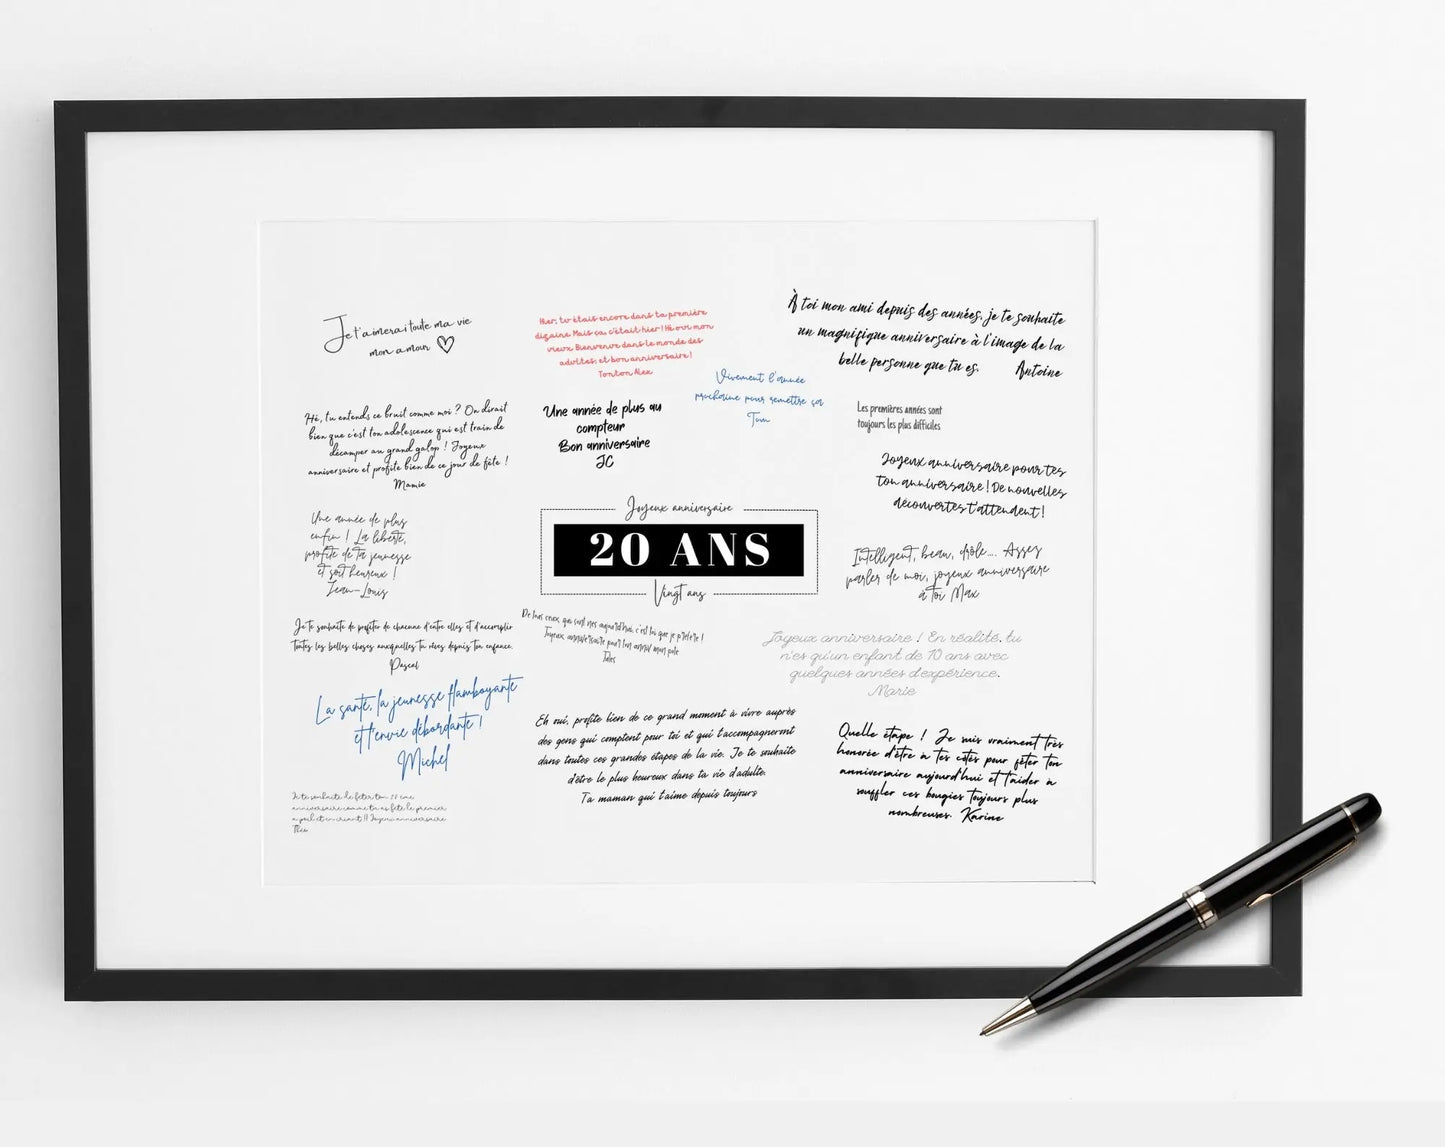 Je t'aimerai toute ma vie
mon amour
Hier, tu étais encore dans ta première
dizaine. Mais ça, c'était hier ! Hé oui mon
vieux. Bienvenue dans le monde des
adultes, et bon anniversaire !
Tonton Alex
À toi mon ami depuis des années, je te souhaite
un magnifique anniversaire à l'image de la
belle personne que tu es. Antoine
Vivement l'année
prochaine pour remettre ça
Tom
Hé, tu entends ce bruit comme moi ? On dirait
bien que c'est ton adolescence qui est train de
décamper au grand galop ! Joyeux
anniversaire et profite bien de ce jour de fête !
Mamie
Une année de plus au
compteur
Bon anniversaire
JC
Les premières années sont
toujours les plus difficiles
Joyeux anniversaire pour tes
ton anniversaire ! De nouvelles
découvertes t'attendent !
Une année de plus
enfin ! La liberté,
profite de ta jeunesse
et soit heureux !
Jean-Louis
Joyeux anniversaire
20 ANS
Vingt ans
Intelligent, beau, drôle.... Assez
parler de moi, joyeux anniversaire
à toi Max
Je te souhaite de profiter de chacune d'entre elles et d'accomplir
toutes les belles choses auxquelles tu rêves depuis ton enfance.
Pascal
De tous ceux qui sont nés aujourd'hui, c'est toi que je préfère !
Joyeux anniversaire pour ton anniv mon pote
Jules
Joyeux anniversaire ! En réalité, tu
n'es qu'un enfant de 10 ans avec
quelques années d'expérience.
Marie
La santé, la jeunesse flamboyante
et l'envie débordante !
Michel
Eh oui, profite bien de ce grand moment à vivre auprès
des gens qui comptent pour toi et qui t'accompagneront
dans toutes ces grandes étapes de la vie. Je te souhaite
d'être le plus heureux dans ta vie d'adulte.
Ta maman qui t'aime depuis toujours
Quelle étape ! Je suis vraiment très
honorée d'être à tes côtés pour fêter ton
anniversaire aujourd'hui et t'aider à
souffler ces bougies toujours plus
nombreuses. Karine
Je te souhaite de fêter ton 20 ème
anniversaire comme tu as fêté le premier
à poil et en criant !! Joyeux anniversaire
Théo